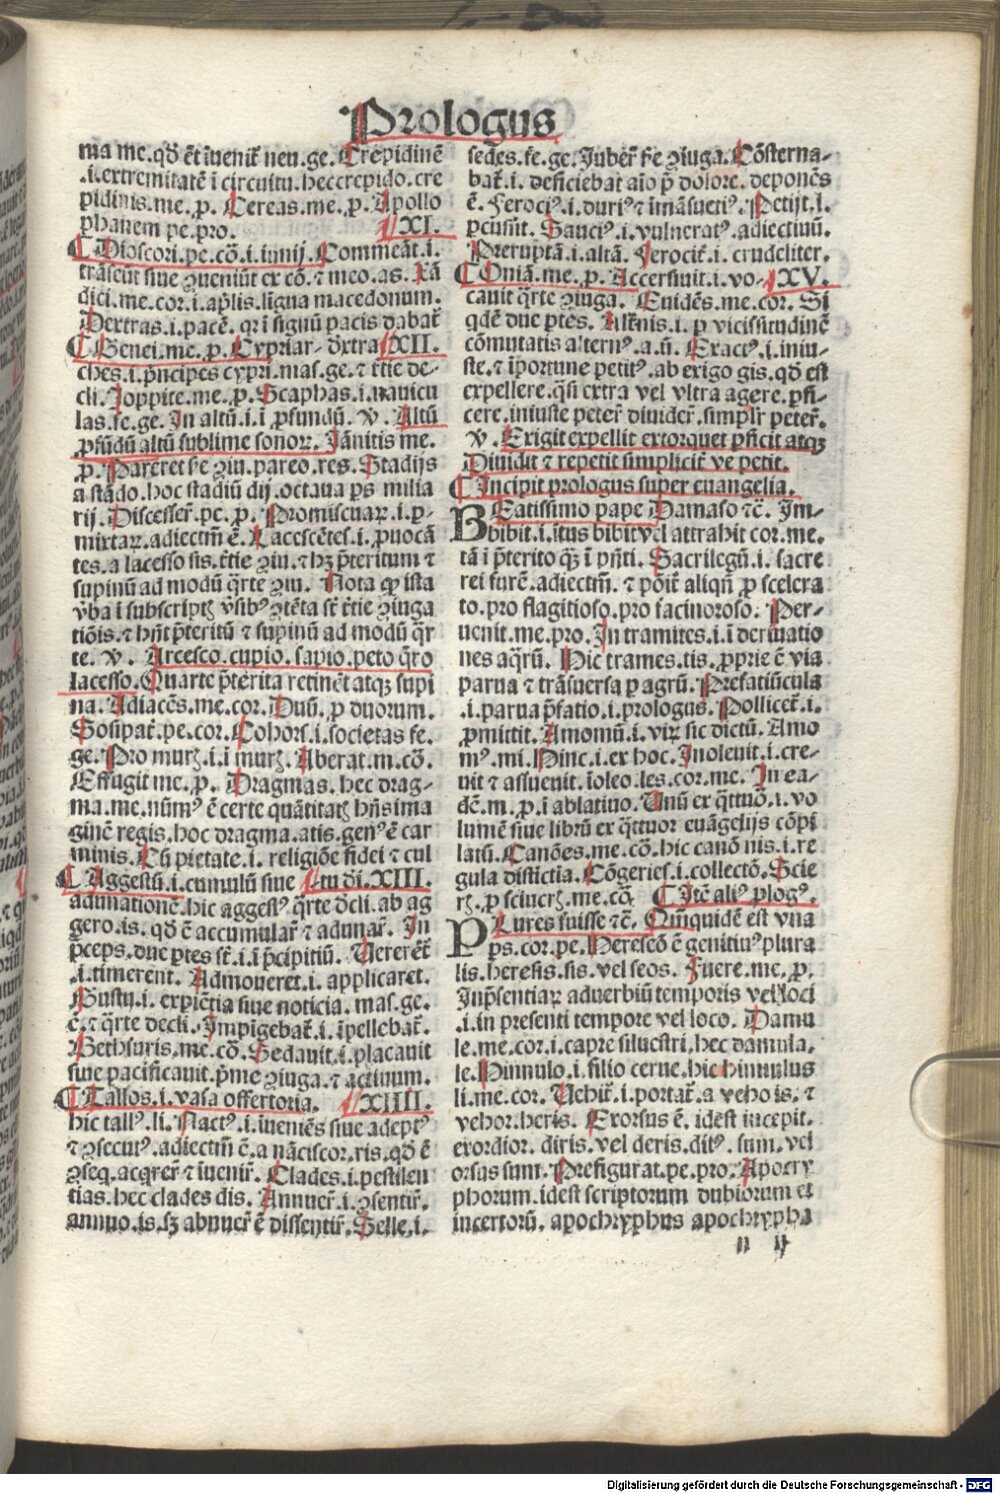 Prologus
ma me. qd̄ ēt īuenit᷑ neu. ge. Crepidinē
.i. extremitatē ī circuitu. hec crepido. cre
pidinis. me. p. Cereas. me. p. Apollo
phanem pe. pro. XI.
Dioscori. pe. cō. i. iunij. Commeāt. i.
trāseūt siue ꝯueniūt ex cō. ⁊ meo. as.
dici. me. cor. i. apl̄is. līgua macedonum.
Dextras. i. pacē. qr ī signū pacis dabāt
Genei. me. p. Cypriar- XII.
ches. i. p̄ncipes cypri. mas. ge. ⁊ t̄tie de-
cli. Ioppite. me. p. Scaphas. i. nauicu
las. fe. ge. In altū. i. ī ꝓfundū. v̄. Altū
ꝓfūdū altū sublime sonoꝝ. Iānitis me.
p. Pareret fe ꝯiu. pareo. res. Stadijs
a stādo. hoc stadiū dij. octaua ps milia
rij. Discesser̄. pe. p. Promiscuaꝝ. i. p-
mixtaꝝ. adiectm̄ ē. Lacescētes. i. ꝓuocā
tes. a lacesso sis. t̄tie ꝯiu. ⁊ hꝫ p̄teritum ⁊
supinū ad modū q̄rte ꝯiu. Nota ꝙ ista
v̄ba ī subscriptꝭ v̄sibꝰ ꝯtēta st̄ t̄tie ꝯiuga
tiōis. ⁊ hn̄t p̄teritū ⁊ supinū ad modū q̄r
te. v̄. Arcesco. cupio. sapio. peto q̄ro
lacesso. Quarte p̄terita retinēt atqꝫ supi
na. Adiacēs. me. cor. Duū. p duorum.
Sosipat᷑. pe. cor. Cohors. i. societas fe.
ge. Pro murꝭ. i. ī murꝭ. Aberat. m. cō.
Effugit me. p. Dragmas. hec drag-
ma. me. nūmꝰ ē certe quātitatꝭ hn̄s ima
ginē regis. hoc dragma. atis. genꝰ ē car
minis. Cū pietate. i. religiōe fidei ⁊ cul
Aggestū. i. cumulū siue tu di. XIII.
adunationē. hic aggestꝰ q̄rte dc̄li. ab ag
gero. is. qd̄ ē accumular̄ ⁊ adunar̄. In
p̄ceps. due ptes st̄. i. ī p̄cipitiū. Vererēt᷑
.i. timerent. Admoueret. i. applicaret.
Gustu. i. expiētia siue noticia. mas. ge.
ē. ⁊ q̄rte decli. Impīgebāt. i. īpellebāt.
Bethsuris. me. cō. Sedauit. i. placauit
siue pacificauit. p̄me ꝯiuga. ⁊ actiuum.
Tallos. i. vasa offertoria. XIIII.
hic tallꝰ. li. Nactꝰ. i. īueniēs siue adeptꝰ
⁊ ꝯsecutꝰ. adiectm̄ ē. a nāciscor. ris. qd̄ ē
ꝯseq. acq̄rer̄ ⁊ īuenir̄. Clades. i. pestilen
tias. hec clades dis. Annuer̄. i. ꝯsentir̄.
annuo. is. sꝫ abnuer̄ ē dissentir̄. Selle. i.
sedes. fe. ge. Iuber̄ fe ꝯiuga. Cōsterna-
bat᷑. i. deficiebat aīo p̄ dolore. deponēs
ē. Ferociꝰ. i. duriꝰ ⁊ īmāsuetiꝰ. Petijt. i.
pcussit. Sauciꝰ. i. vulneratꝰ. adiectiuū.
Preruptā. i. altā. Ferocit᷑. i. crudeliter.
Oniā. me. p. Accersiuit. i. vo- XV.
cauit q̄rte ꝯiuga. Euidēs. me. cor. Si
qdē due ptes. Alt̄nis. i. p vicissitudinē
cōmutatis alternꝰ. a. ū. Exactꝰ. i. iniu-
ste. ⁊ īportune petitꝰ. ab exigo gis. qd̄ est
expellere. q̄si extra vel vltra agere. pfi-
cere. iniuste peter̄ diuider̄. simplr̄ peter̄.
v̄. Exigit expellit extorquet pficit atqꝫ
Diuidit ⁊ repetit simplicit᷑ ve petit.
Incipit prologus super euangelia.
BEatissimo pape Damaso ⁊c̄. Im-
bibit. i. ītus bibit vel attrahit cor. me.
tā ī p̄terito qꝫ ī pn̄ti. Sacrilegū. i. sacre
rei furē. adiectm̄. ⁊ pōit᷑ aliqn̄ p scelera
to. pro flagitioso. pro facinoroso. Per-
uenit. me. pro. In tramites. i. ī deriuatio
nes aq̄rū. Hic trames. tis. ꝓprie ē via
parua ⁊ trāsuersa p agrū. Prefatiūcula
.i. parua p̄fatio. i. prologus. Pollicet᷑. i.
ꝓmittit. Amomū. i. viꝝ sic dictū. Amo
mꝰ. mi. Hinc. i. ex hoc. Inoleuit. i. cre-
uit ⁊ assueuit. īoleo. les. cor. me. In ea-
dē. m. p. ī ablatiuo. Vnū ex q̄ttuō. i. vo
lumē siue librū ex q̄ttuor euāgelijs cōpi
latū. Canōes. me. cō. hic canō nis. i. re
gula distictia. Cōgeries. i. collectō. Scie
rꝭ. p sciuerꝭ. me. cō. Itē aliꝰ plogꝰ.
PLures fuisse ⁊c̄. Qm̄quidē est vna
ps. cor. pe. Hereseō ē genitiuꝰ plura
lis. heresis. sis. vel seos. Fuere. me. p.
Inp̄sentiaꝝ aduerbiū temporis vel loci
.i. in presenti tempore vel loco. Damu
le. me. cor. i. capre siluestri. hec damula.
le. Hinnulo. i. filio cerue. hic hinnulus
li. me. cor. Vehit᷑. i. portat᷑. a veho is. ⁊
vehor. heris. Exorsus ē. idest incepit.
exordior. diris. vel deris. ditꝰ. sum. vel
orsus sum. Prefigurat. pe. pro. Apocry
phorum. idest scriptorum dubiorum et
incertorū. apochryphus apochrypha
ij
Digitalisierung gefördert durch die Deutsche Forschungsgemeinschaft - DFG